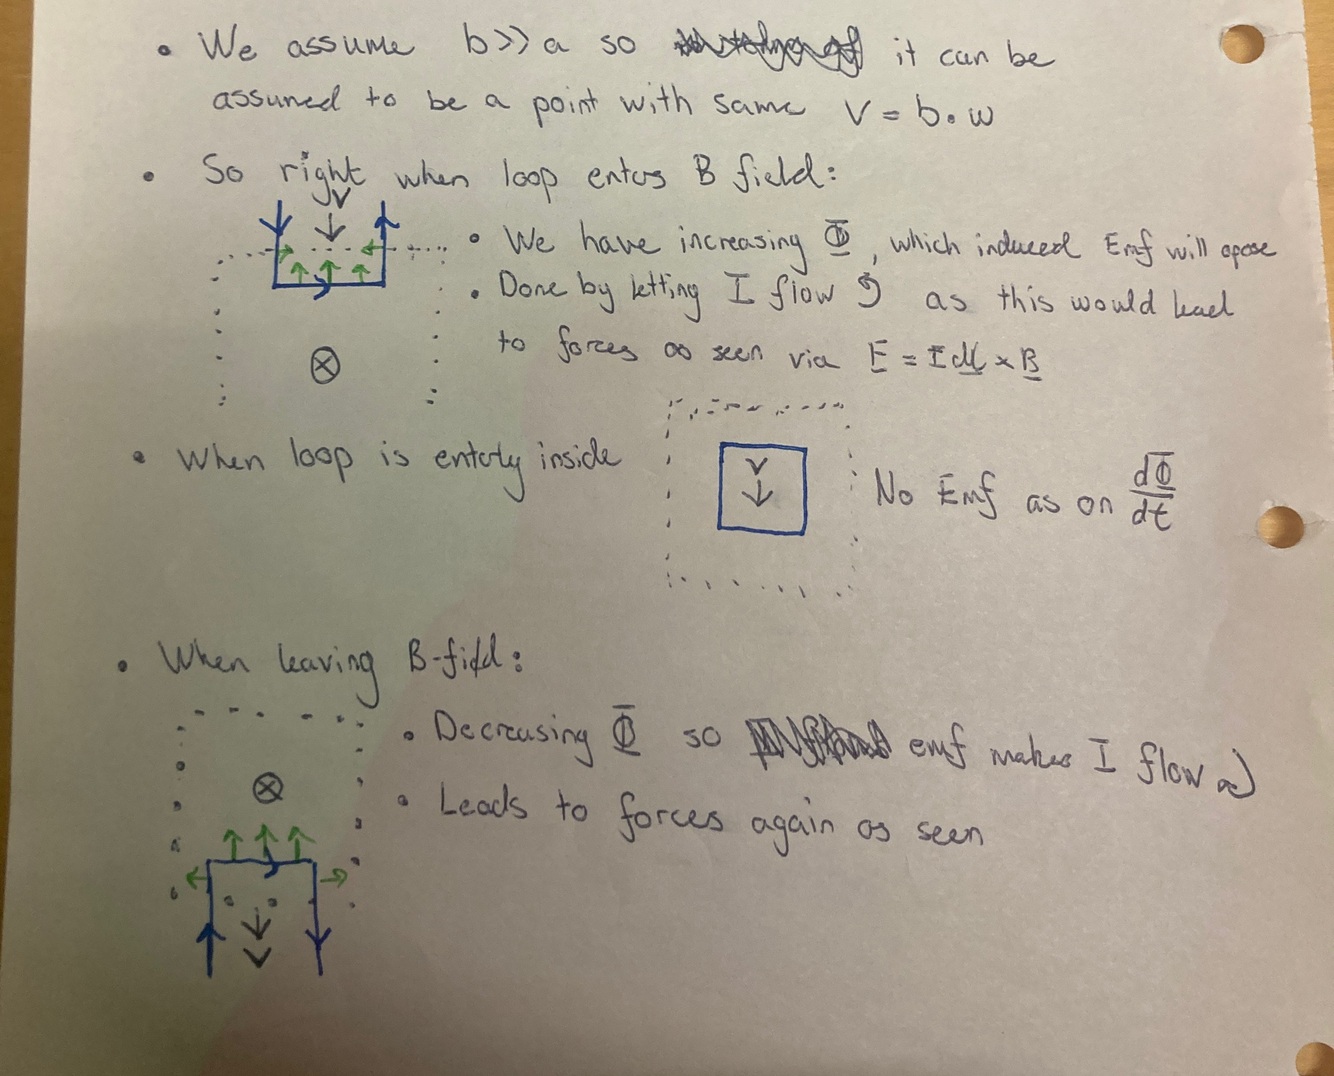 • We assume b>>a so it can be
assumed to be a point with same V = b·w
• So right when loop enters B field:
V
• We have increasing Φ, which induced Emf will opose
• Done by letting I flow ↺ as this would lead
to forces as seen via F = Idl × B
⊗
• When loop is entirly inside
V
No Emf as on dΦ/dt
• When leaving B-field:
• Decreasing Φ so emf makes I flow ↷
⊗
• Leads to forces again as seen
V